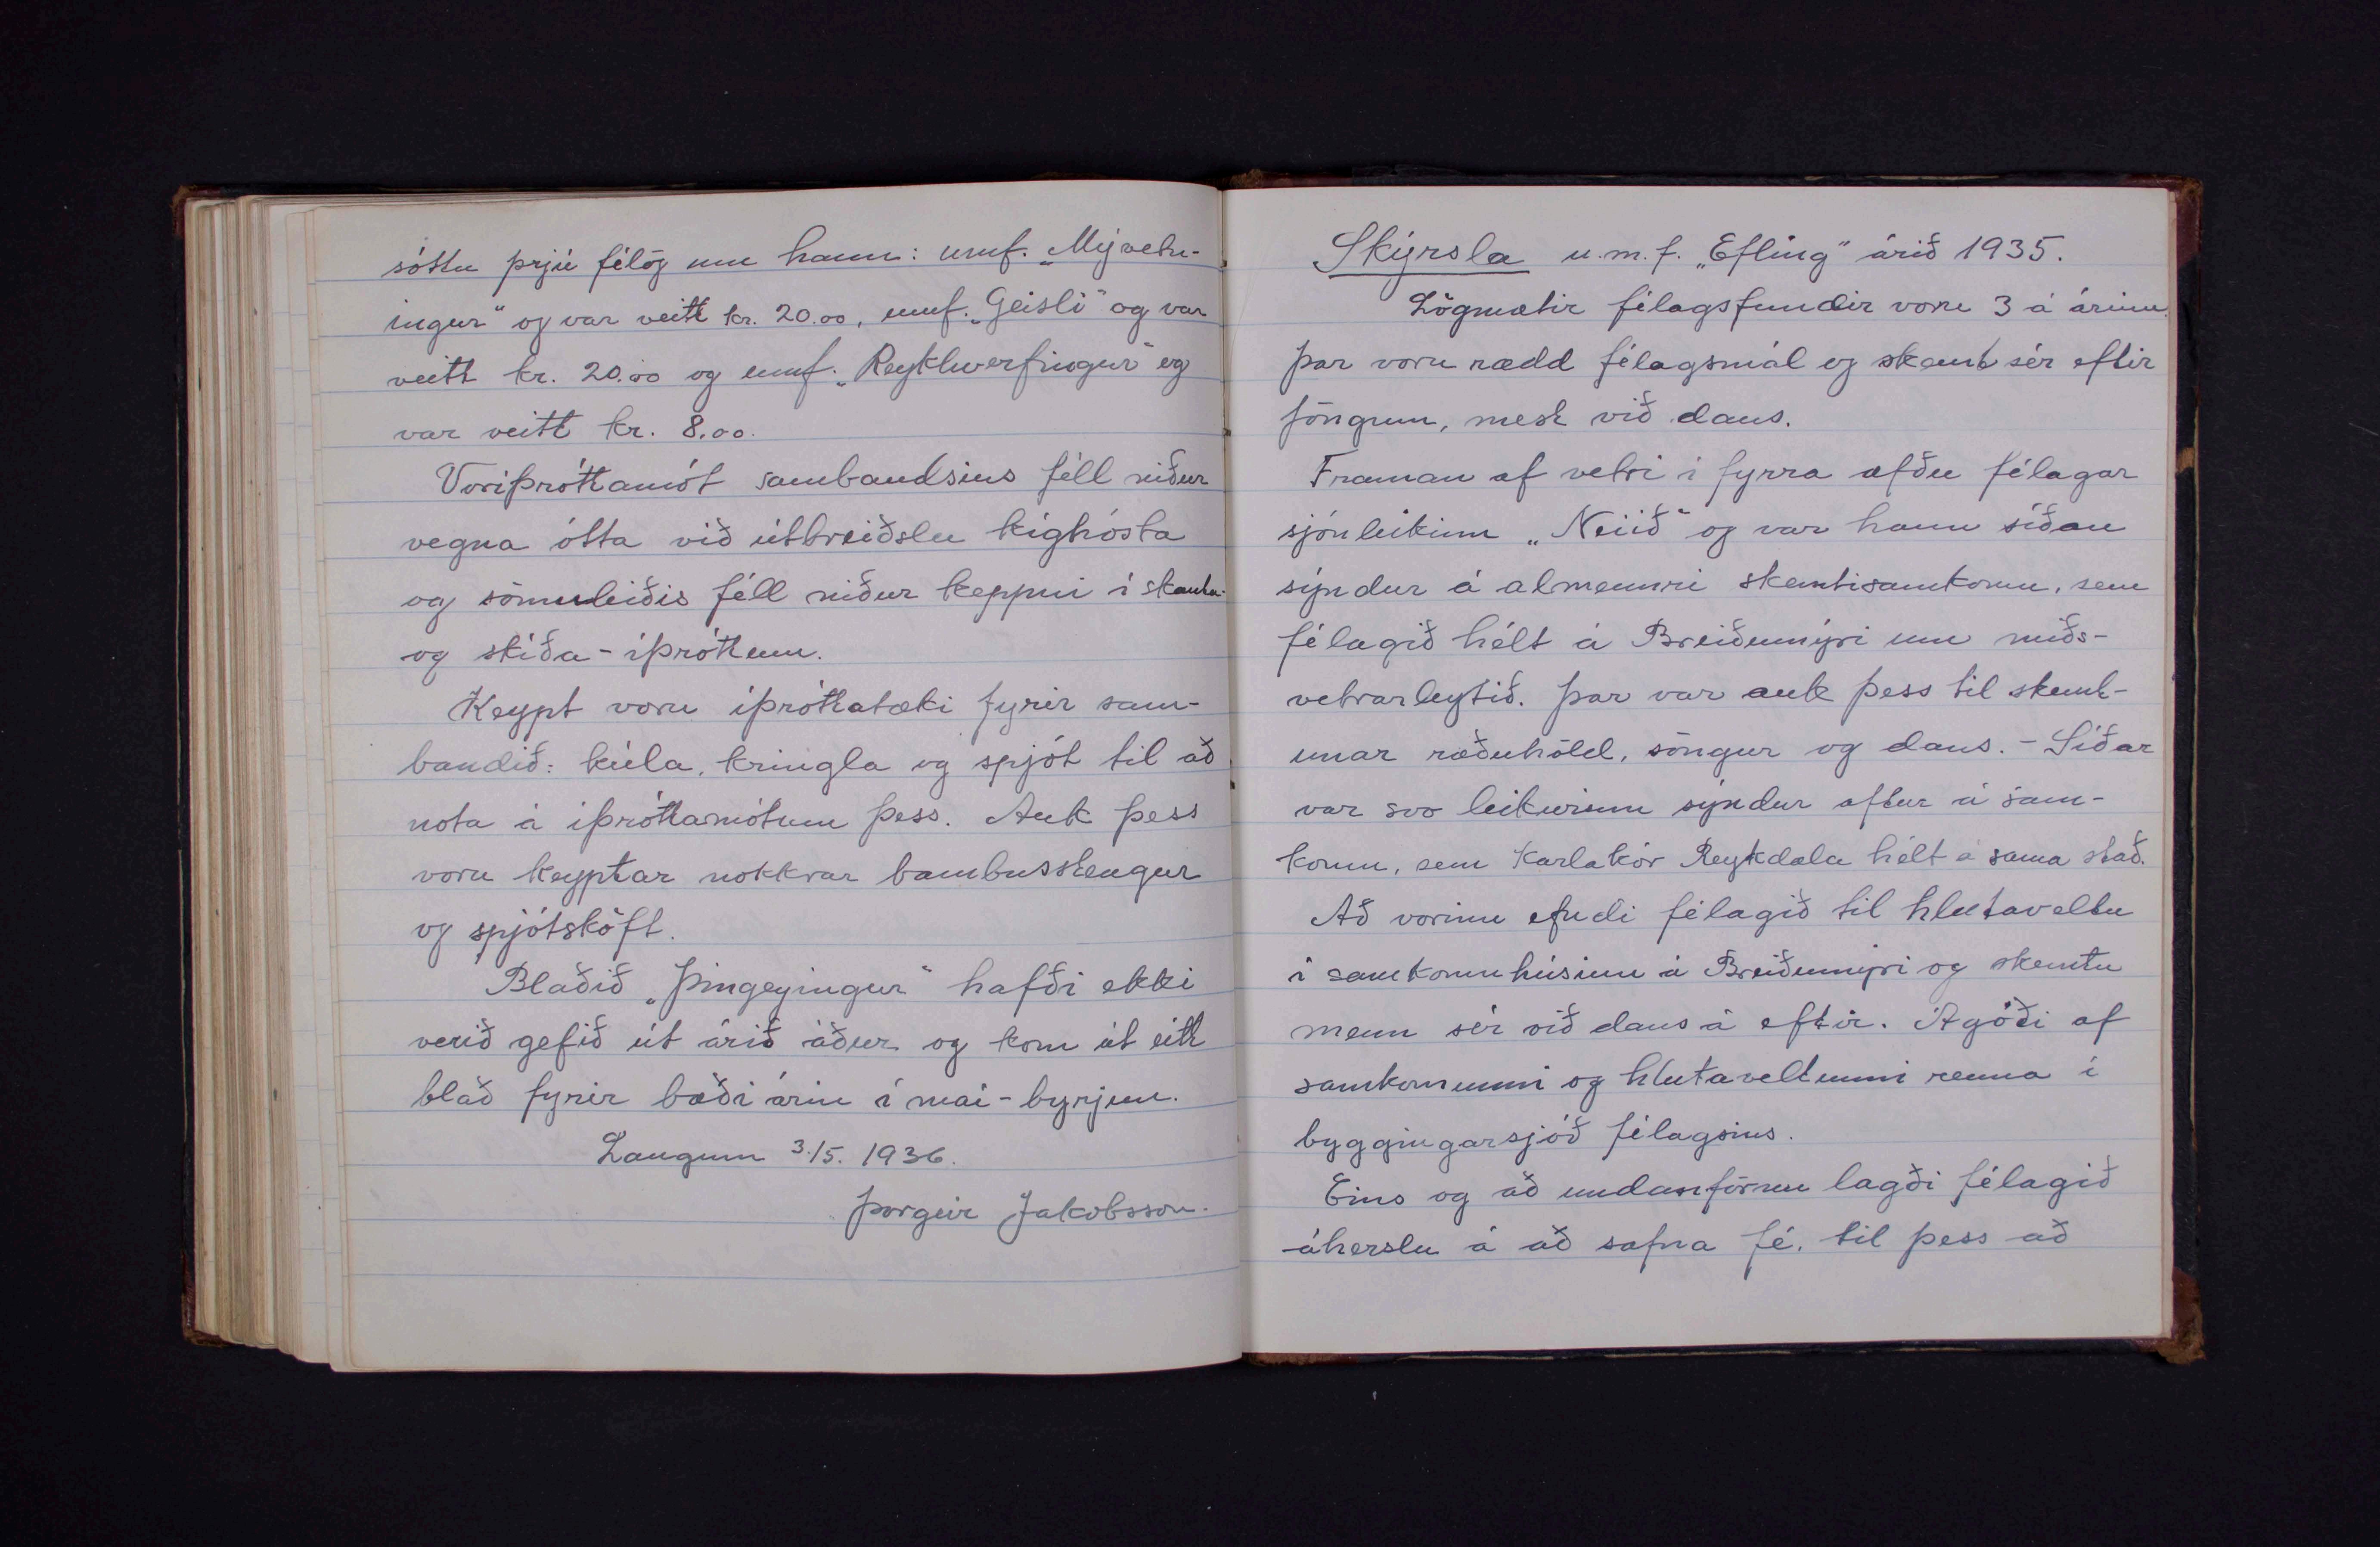 sóttu þrjú félög um hann: umf. „Mývetn-
ingur“ og var veitt kr. 20.00, umf. „Geisli“ og var
veitt kr. 20.00 og umf. „Reykhverfingur“ og
var veitt kr. 8.00.
Voríþróttamót sambandsins féll niður
vegna ótta við útbreiðslu kíghósta
og sömuleiðis féll niður keppni í skauta-
og skíða-íþróttum.
Keypt voru íþróttatæki fyrir sam-
bandið: kúla, kringla og spjót til að
nota á íþróttamótum þess. Auk þess
voru keyptar nokkrar bambusstengur
og spjótsköft.
Blaðið „Þingeyingur“ hafði ekki
verið gefið út árið áður og kom út eitt
blað fyrir bæði árin í maí-byrjun.
Laugum 3./5. 1936.
Þorgeir Jakobsson.
Skýrsla u.m.f. „Efling“ árið 1935.
Lögmætir félagsfundir voru 3 á árinu.
Þar voru rædd félagsmál og skemt sér eftir
föngum, mest við dans.
Framan af vetri í fyrra æfðu félagar
sjónleikinn „Neiið“ og var hann síðan
sýndur á almennri skemtisamkomu, sem
félagið hélt á Breiðumýri um miðs-
vetrarleytið. Þar var auk þess til skemt-
unar ræðuhöld, söngur og dans. - Síðar
var svo leikurinn sýndur aftur á sam-
komu, sem Karlakór Reykdæla hélt á sama stað.
Að vorinu efndi félagið til hlutaveltu
í samkomuhúsinu á Breiðumýri og skemtu
menn sér við dans á eftir. Ágóði af
samkomunni og hlutaveltunni renna í
byggingarsjóð félagsins.
Eins og að undanförnu lagði félagið
áherslu á að safna fé, til þess að